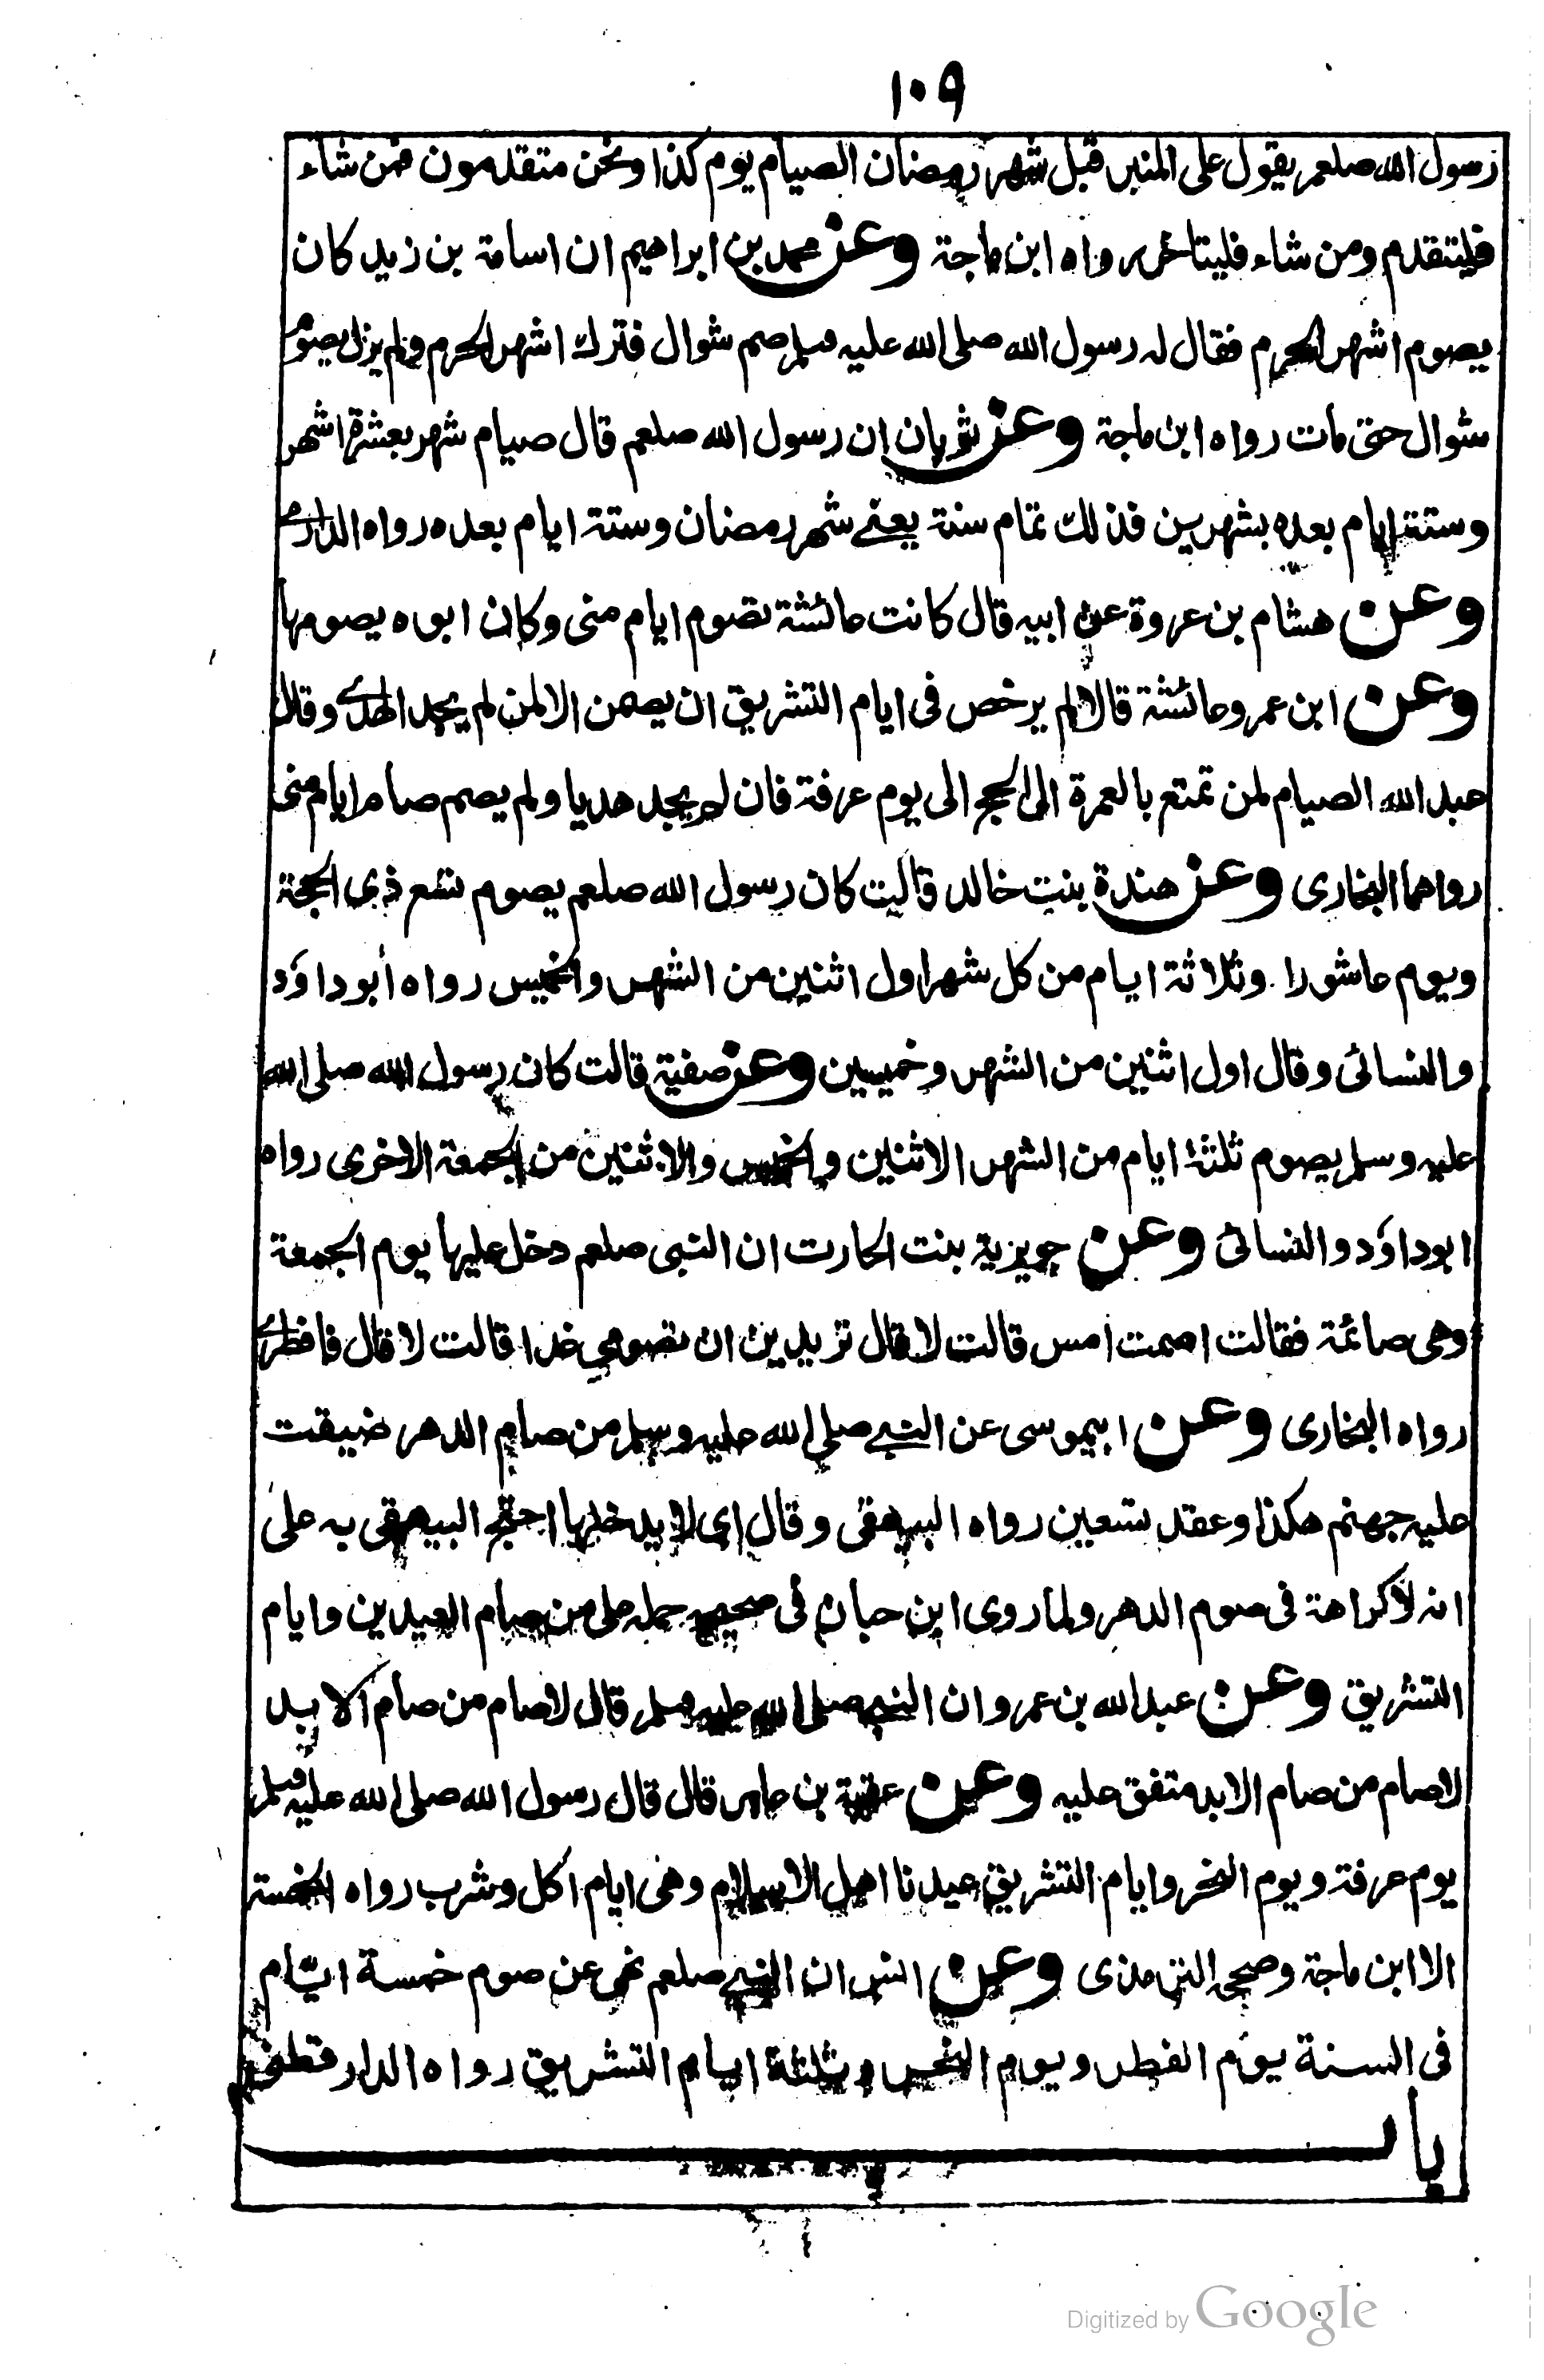 ١٠٩
رسول الله صلعم يقول على المنبر قبل شهر رمضان الصيام يوم كذا ونحن متقدمون فمن شاء
فليتقدم ومن شاء فليتاخر رواه ابن ماجة وعن محمد بن ابراهيم ان اسامة بن زيد كان
يصوم اشهر الحرم فقال له رسول الله صلى الله عليه وسلم صم شوال فترك اشهر الحرم ولم يزل يصوم
شوال حتى مات رواه ابن ماجة وعن ثوبان ان رسول الله صلعم قال صيام شهر بعشرة اشهر
وستة ايام بعده بشهرين فذلك تمام سنة يعنے شهر رمضان وستة ايام بعده رواه الدارمے
وعن هشام بن عروة عن ابيه قال كانت عائشة تصوم ايام منى وكان ابوه يصومها
وعن ابن عمر وعائشة قالا لم يرخص فى ايام التشريق ان يصمن الا لمن لم يجد الهدے وقال
عبد الله الصيام لمن تمتع بالعمرة الى الحج الى يوم عرفة فان لم يجد هديا ولم يصم صام ايام منى
رواهما البخارى وعن هندة بنت خالد قالت كان رسول الله صلعم يصوم تسع ذى الحجة
ويوم عاشورا وثلاثة ايام من كل شهر اول اثنين من الشهر والخميس رواه أبو داؤد
والنسائى وقال اول اثنين من الشهر وخميسين وعن صفية قالت كان رسول الله صلى الله
عليه وسلم يصوم ثلثة ايام من الشهر الاثنين والخميس والاثنين من الجمعة الاخرى رواه
ابو داؤد والنسائى وعن جويزية بنت الحارت ان النبى صلعم دخل عليها يوم الجمعة
وهى صائمة فقالت اصمت امس قالت لا قال تزيدين ان تصومي غدا قالت لا قال فافطرے
رواه البخارى وعن ابيموسى عن النبے صلى الله عليه وسلم من صام الدهر ضيقت
عليه جهنم هكذا وعقد تسعين رواه البيهقى وقال اى لا يدخلها احتج البيهقى به على
انه لا كراهة فى صوم الدهر ولما روى ابن حبان فى صحيحه حمله على من صام العيدين وايام
التشريق وعن عبد الله بن عمرو ان النبے صلى الله عليه وسلم قال لا صام من صام الا بد
لا صام من صام الابد متفق عليه وعن عقبة بن عامر قال قال رسول الله صلى الله عليه وسلم
يوم عرفة ويوم النحر وايام التشريق عيدنا اهل الاسلام وهى ايام اكل وشرب رواه الخمسة
الا ابن ماجة وصححه الترمذى وعن انس ان النبے صلعم نهى عن صوم خمسة ايّام
فى السنة يوم الفطر ويوم النحر وثلثة ايام التشريق رواه الدارقطنى
باب
Digitized by Google